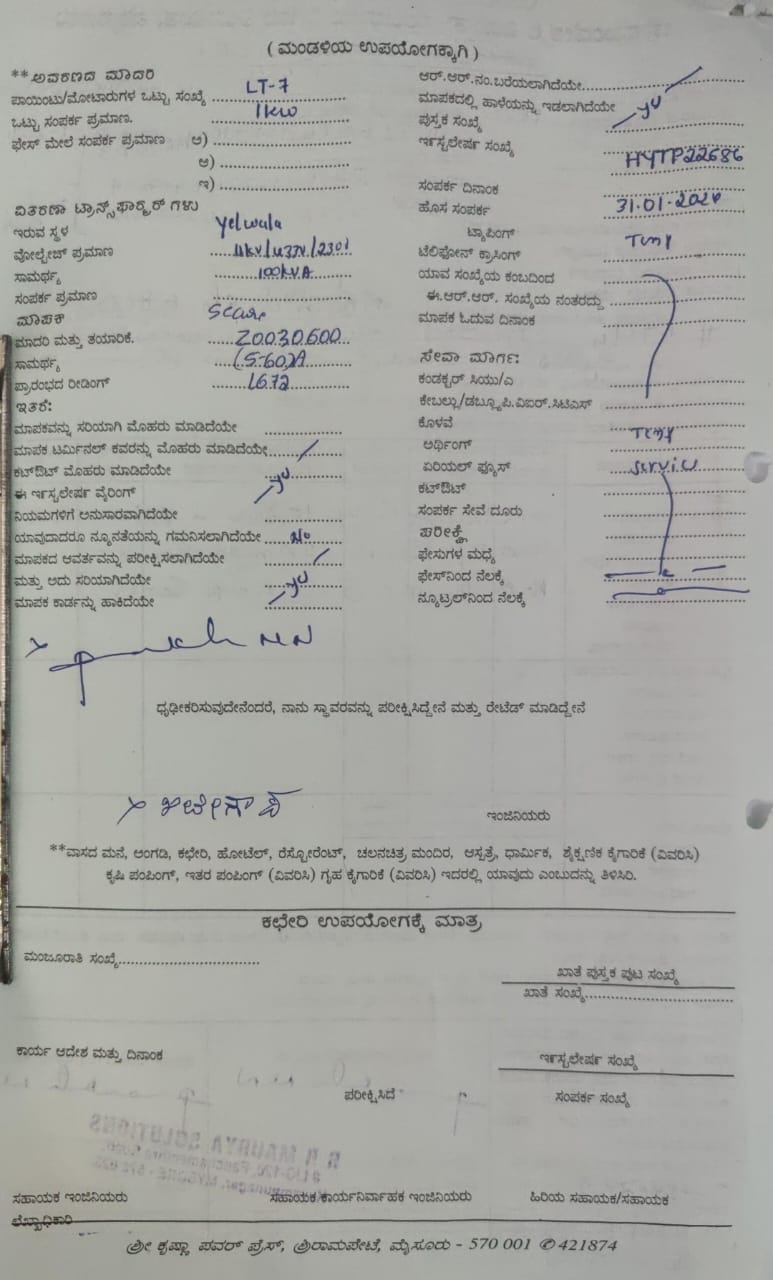 ( ಮಂಡಳಿಯ ಉಪಯೋಗಕ್ಕಾಗಿ )
**ಅವರಣದ ಮಾದರಿ
LT-7
ಪಾಯಿಂಟು/ಮೋಟಾರುಗಳ ಒಟ್ಟು ಸಂಖ್ಯೆ
ಒಟ್ಟು ಸಂಪರ್ಕ ಪ್ರಮಾಣ. 1kw
ಫೇಸ್ ಮೇಲೆ ಸಂಪರ್ಕ ಪ್ರಮಾಣ ಅ)
ಆ)
ಇ)
ವಿತರಣಾ ಟ್ರಾನ್ಸ್‌ಫಾರ್‍ಮರ್ ಗಳು
ಇರುವ ಸ್ಥಳ Yelwala
ವೋಲ್ಟೇಜ್ ಪ್ರಮಾಣ
ಸಾಮರ್ಥ್ಯ 100kVA
ಸಂಪರ್ಕ ಪ್ರಮಾಣ
ಮಾಪಕ
ಮಾದರಿ ಮತ್ತು ತಯಾರಿಕೆ. Z0030600
ಸಾಮರ್ಥ್ಯ (5-60)A
ಪ್ರಾರಂಭದ ರೀಡಿಂಗ್ 1672
ಇತರೆ:
ಮಾಪಕವನ್ನು ಸರಿಯಾಗಿ ಮೊಹರು ಮಾಡಿದೆಯೇ
ಮಾಪಕ ಟರ್ಮಿನಲ್ ಕವರನ್ನು ಮೊಹರು ಮಾಡಿದೆಯೇ
ಕಟ್‌ಔಟ್ ಮೊಹರು ಮಾಡಿದೆಯೇ
ಈ ಇನ್ಸ್ಟಲೇಷನ್ ವೈರಿಂಗ್
ನಿಯಮಗಳಿಗೆ ಅನುಸಾರವಾಗಿದೆಯೇ
ಯಾವುದಾದರೂ ನ್ಯೂನತೆಯನ್ನು ಗಮನಿಸಲಾಗಿದೆಯೇ No
ಮಾಪಕದ ಆವರ್ತವನ್ನು ಪರೀಕ್ಷಿಸಲಾಗಿದೆಯೇ
ಮತ್ತು ಅದು ಸರಿಯಾಗಿದೆಯೇ
ಮಾಪಕ ಕಾರ್ಡನ್ನು ಹಾಕಿದೆಯೇ
ಆರ್.ಆರ್.ನಂ.ಬರೆಯಲಾಗಿದೆಯೇ
ಮಾಪಕದಲ್ಲಿ ಹಾಳೆಯನ್ನು ಇಡಲಾಗಿದೆಯೇ
ಪುಸ್ತಕ ಸಂಖ್ಯೆ
ಇನ್ಸ್ಟಲೇಷನ್ ಸಂಖ್ಯೆ
HYTP22686
ಸಂಪರ್ಕ ದಿನಾಂಕ
ಹೊಸ ಸಂಪರ್ಕ 31-01-2024
ಟ್ಯಾಪಿಂಗ್
ಟೆಲಿಫೋನ್ ಕ್ರಾಸಿಂಗ್
ಯಾವ ಸಂಖ್ಯೆಯ ಕಂಬದಿಂದ
ಈ.ಆರ್.ಆರ್. ಸಂಖ್ಯೆಯ ನಂತರದ್ದು
ಮಾಪಕ ಓದುವ ದಿನಾಂಕ
ಸೇವಾ ಮಾರ್ಗ:
ಕಂಡಕ್ಟರ್ ಸಿಯು/ಎ
ಕೇಬಲ್ಲು/ಡಬ್ಲ್ಯೂ.ಪಿ.ವಿಐಆರ್.ಸಿಟಿಎಸ್
ಕೊಳವೆ
ಅರ್ಥಿಂಗ್
ಏರಿಯಲ್ ಫ್ಯೂಸ್ service
ಕಟ್‌ಔಟ್
ಸಂಪರ್ಕ ಸೇವೆ ದೂರು
ಪರೀಕ್ಷೆ
ಫೇಸುಗಳ ಮಧ್ಯೆ
ಫೇಸ್‌ನಿಂದ ನೆಲಕ್ಕೆ
ನ್ಯೂಟ್ರಲ್‌ನಿಂದ ನೆಲಕ್ಕೆ
ಧೃಢೀಕರಿಸುವುದೇನೆಂದರೆ, ನಾನು ಸ್ಥಾವರವನ್ನು ಪರೀಕ್ಷಿಸಿದ್ದೇನೆ ಮತ್ತು ರೇಟೆಡ್ ಮಾಡಿದ್ದೇನೆ
ಇಂಜಿನಿಯರು
**ವಾಸದ ಮನೆ, ಅಂಗಡಿ, ಕಛೇರಿ, ಹೋಟೆಲ್, ರೆಸ್ಟೋರೆಂಟ್, ಚಲನಚಿತ್ರ ಮಂದಿರ, ಆಸ್ಪತ್ರೆ, ಧಾರ್ಮಿಕ, ಶೈಕ್ಷಣಿಕ ಕೈಗಾರಿಕೆ (ವಿವರಿಸಿ)
ಕೃಷಿ ಪಂಪಿಂಗ್, ಇತರ ಪಂಪಿಂಗ್ (ವಿವರಿಸಿ) ಗೃಹ ಕೈಗಾರಿಕೆ (ವಿವರಿಸಿ) ಇದರಲ್ಲಿ ಯಾವುದು ಎಂಬುದನ್ನು ತಿಳಿಸಿರಿ.
ಕಛೇರಿ ಉಪಯೋಗಕ್ಕೆ ಮಾತ್ರ
ಮಂಜೂರಾತಿ ಸಂಖ್ಯೆ
ಖಾತೆ ಪುಸ್ತಕ ಪುಟ ಸಂಖ್ಯೆ
ಖಾತೆ ಸಂಖ್ಯೆ
ಕಾರ್ಯ ಆದೇಶ ಮತ್ತು ದಿನಾಂಕ
ಇನ್ಸ್ಟಲೇಷನ್ ಸಂಖ್ಯೆ
ಪರೀಕ್ಷಿಸಿದೆ
ಸಂಪರ್ಕ ಸಂಖ್ಯೆ
ಸಹಾಯಕ ಇಂಜಿನಿಯರು
ಸಹಾಯಕ/ಕಾರ್ಯನಿರ್ವಾಹಕ ಇಂಜಿನಿಯರು
ಹಿರಿಯ ಸಹಾಯಕ/ಸಹಾಯಕ
ಲೆಖ್ಖಾಧಿಕಾರಿ
ಶ್ರೀ ಕೃಷ್ಣಾ ಪವರ್ ಪ್ರೆಸ್, ಶ್ರೀರಾಮಪೇಟೆ, ಮೈಸೂರು - 570 001 ✆421874